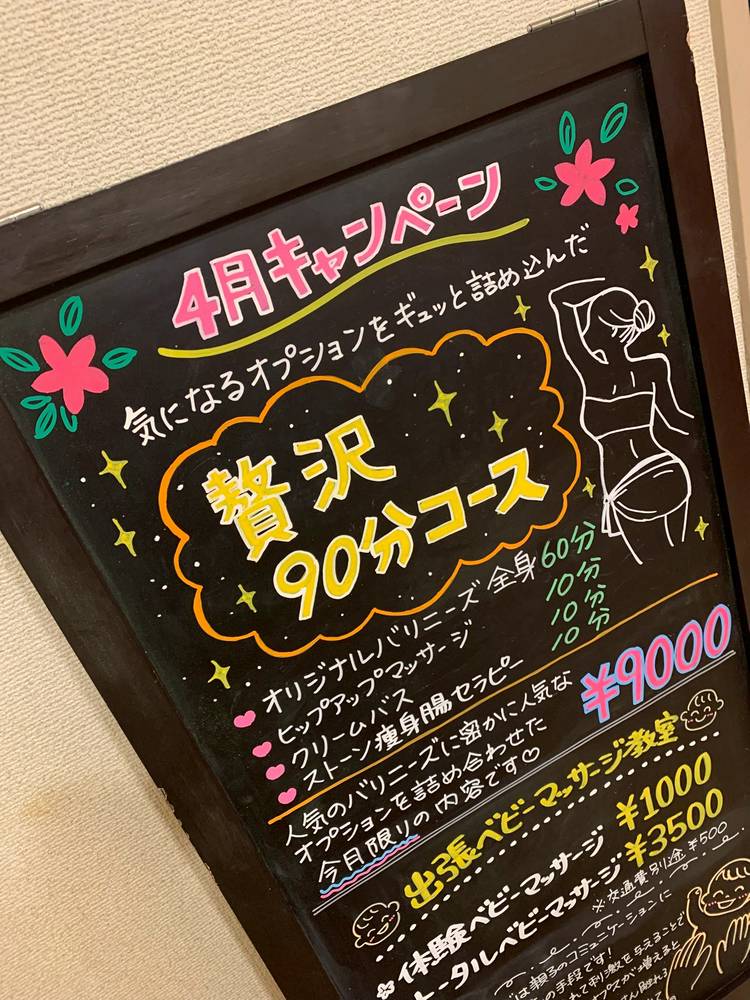 4月キャンペーン
気になるオプションをギュッと詰め込んだ
贅沢
90分コース
オリジナルバリニーズ 全身60分
ヒップアップマッサージ 10分
クリームバス 10分
ストーン痩身腸セラピー 10分
¥9000
人気のバリニーズに密かに人気な
オプションを詰め合わせた
今月限りの内容です♡
出張ベビーマッサージ教室
体験ベビーマッサージ ¥1000
トータルベビーマッサージ ¥3500
※交通費別途 ¥500
は親子のコミュニケーションに
の手段です!
て刺激を与えることで
が増えると